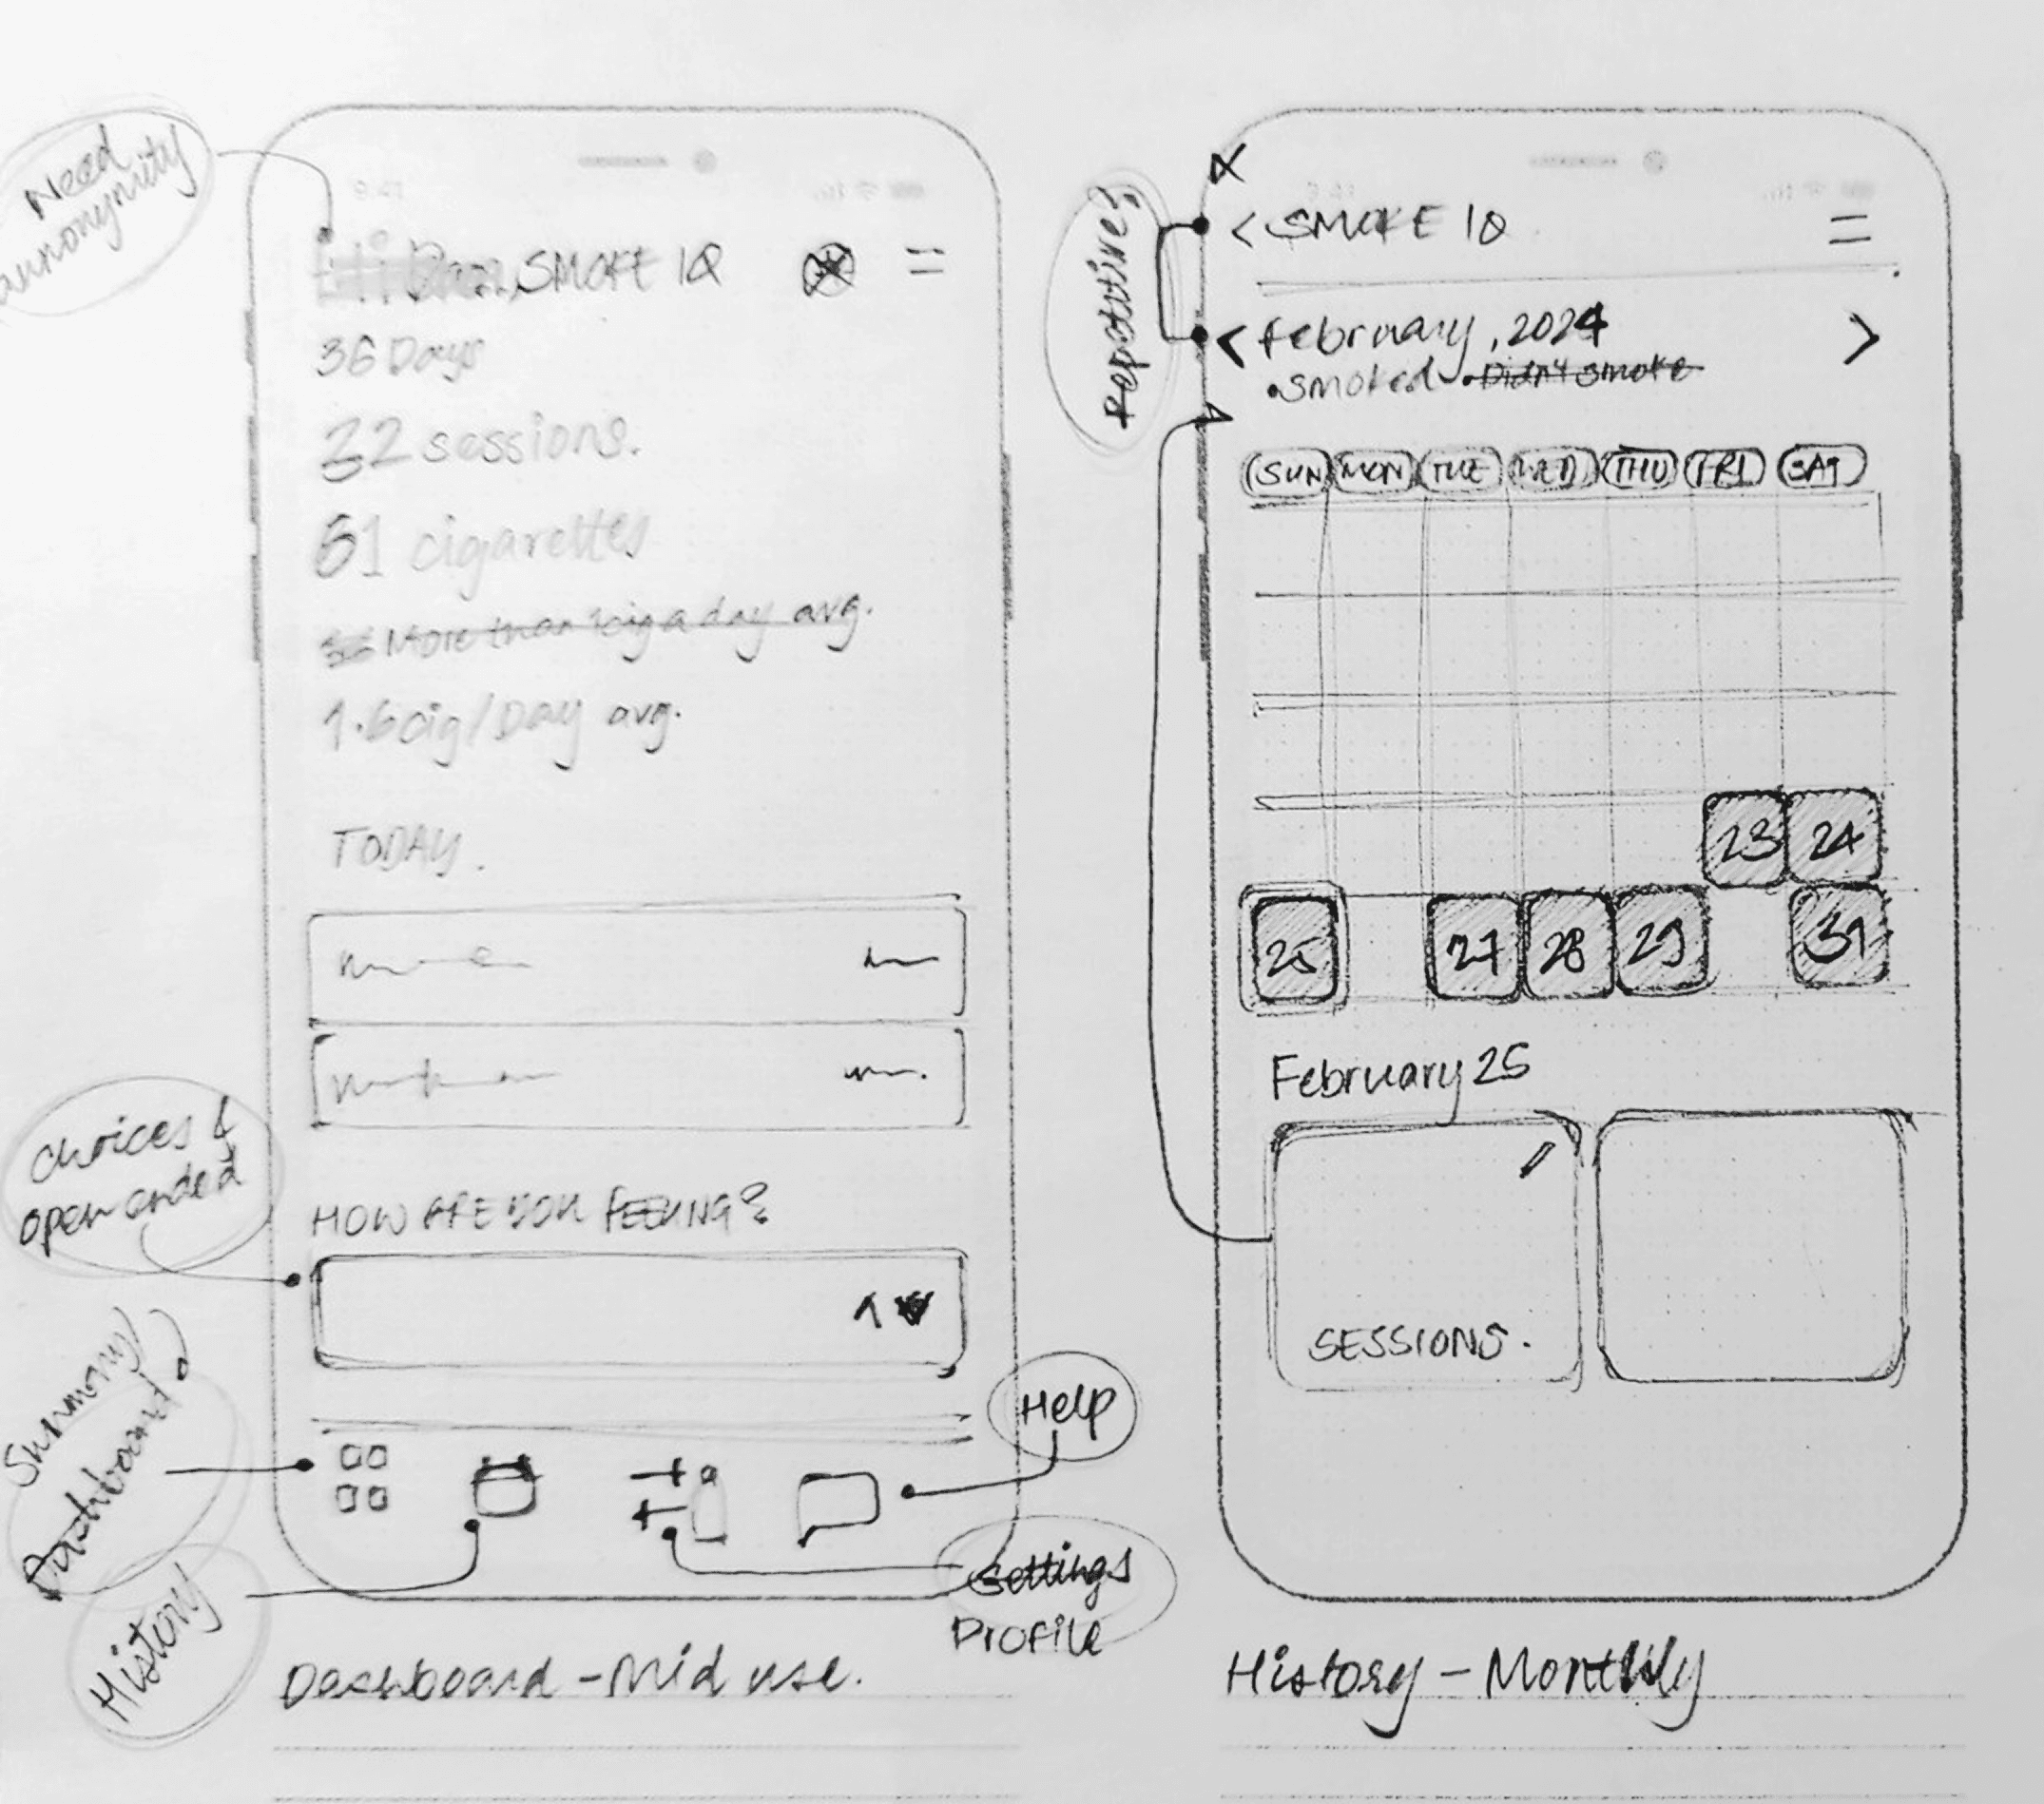 Need
annonymity
Hi Dan, SMOKE IQ
36 Days
22 sessions.
61 cigarettes
More than 1cig a day avg.
1.6cig/Day avg.
TODAY.
Choices &
open ended
HOW ARE YOU FEELING?
Summary/
Dashboard
History
Help
Settings
Profile
Dashboard - Mid use.
Repetitive?
< SMOKE IQ
< february, 2024 >
• smoked • Didn't smoke
SUN MON TUE WED THU FRI SAT
23 24
25 27 28 29 31
February 25
SESSIONS.
History - Monthly